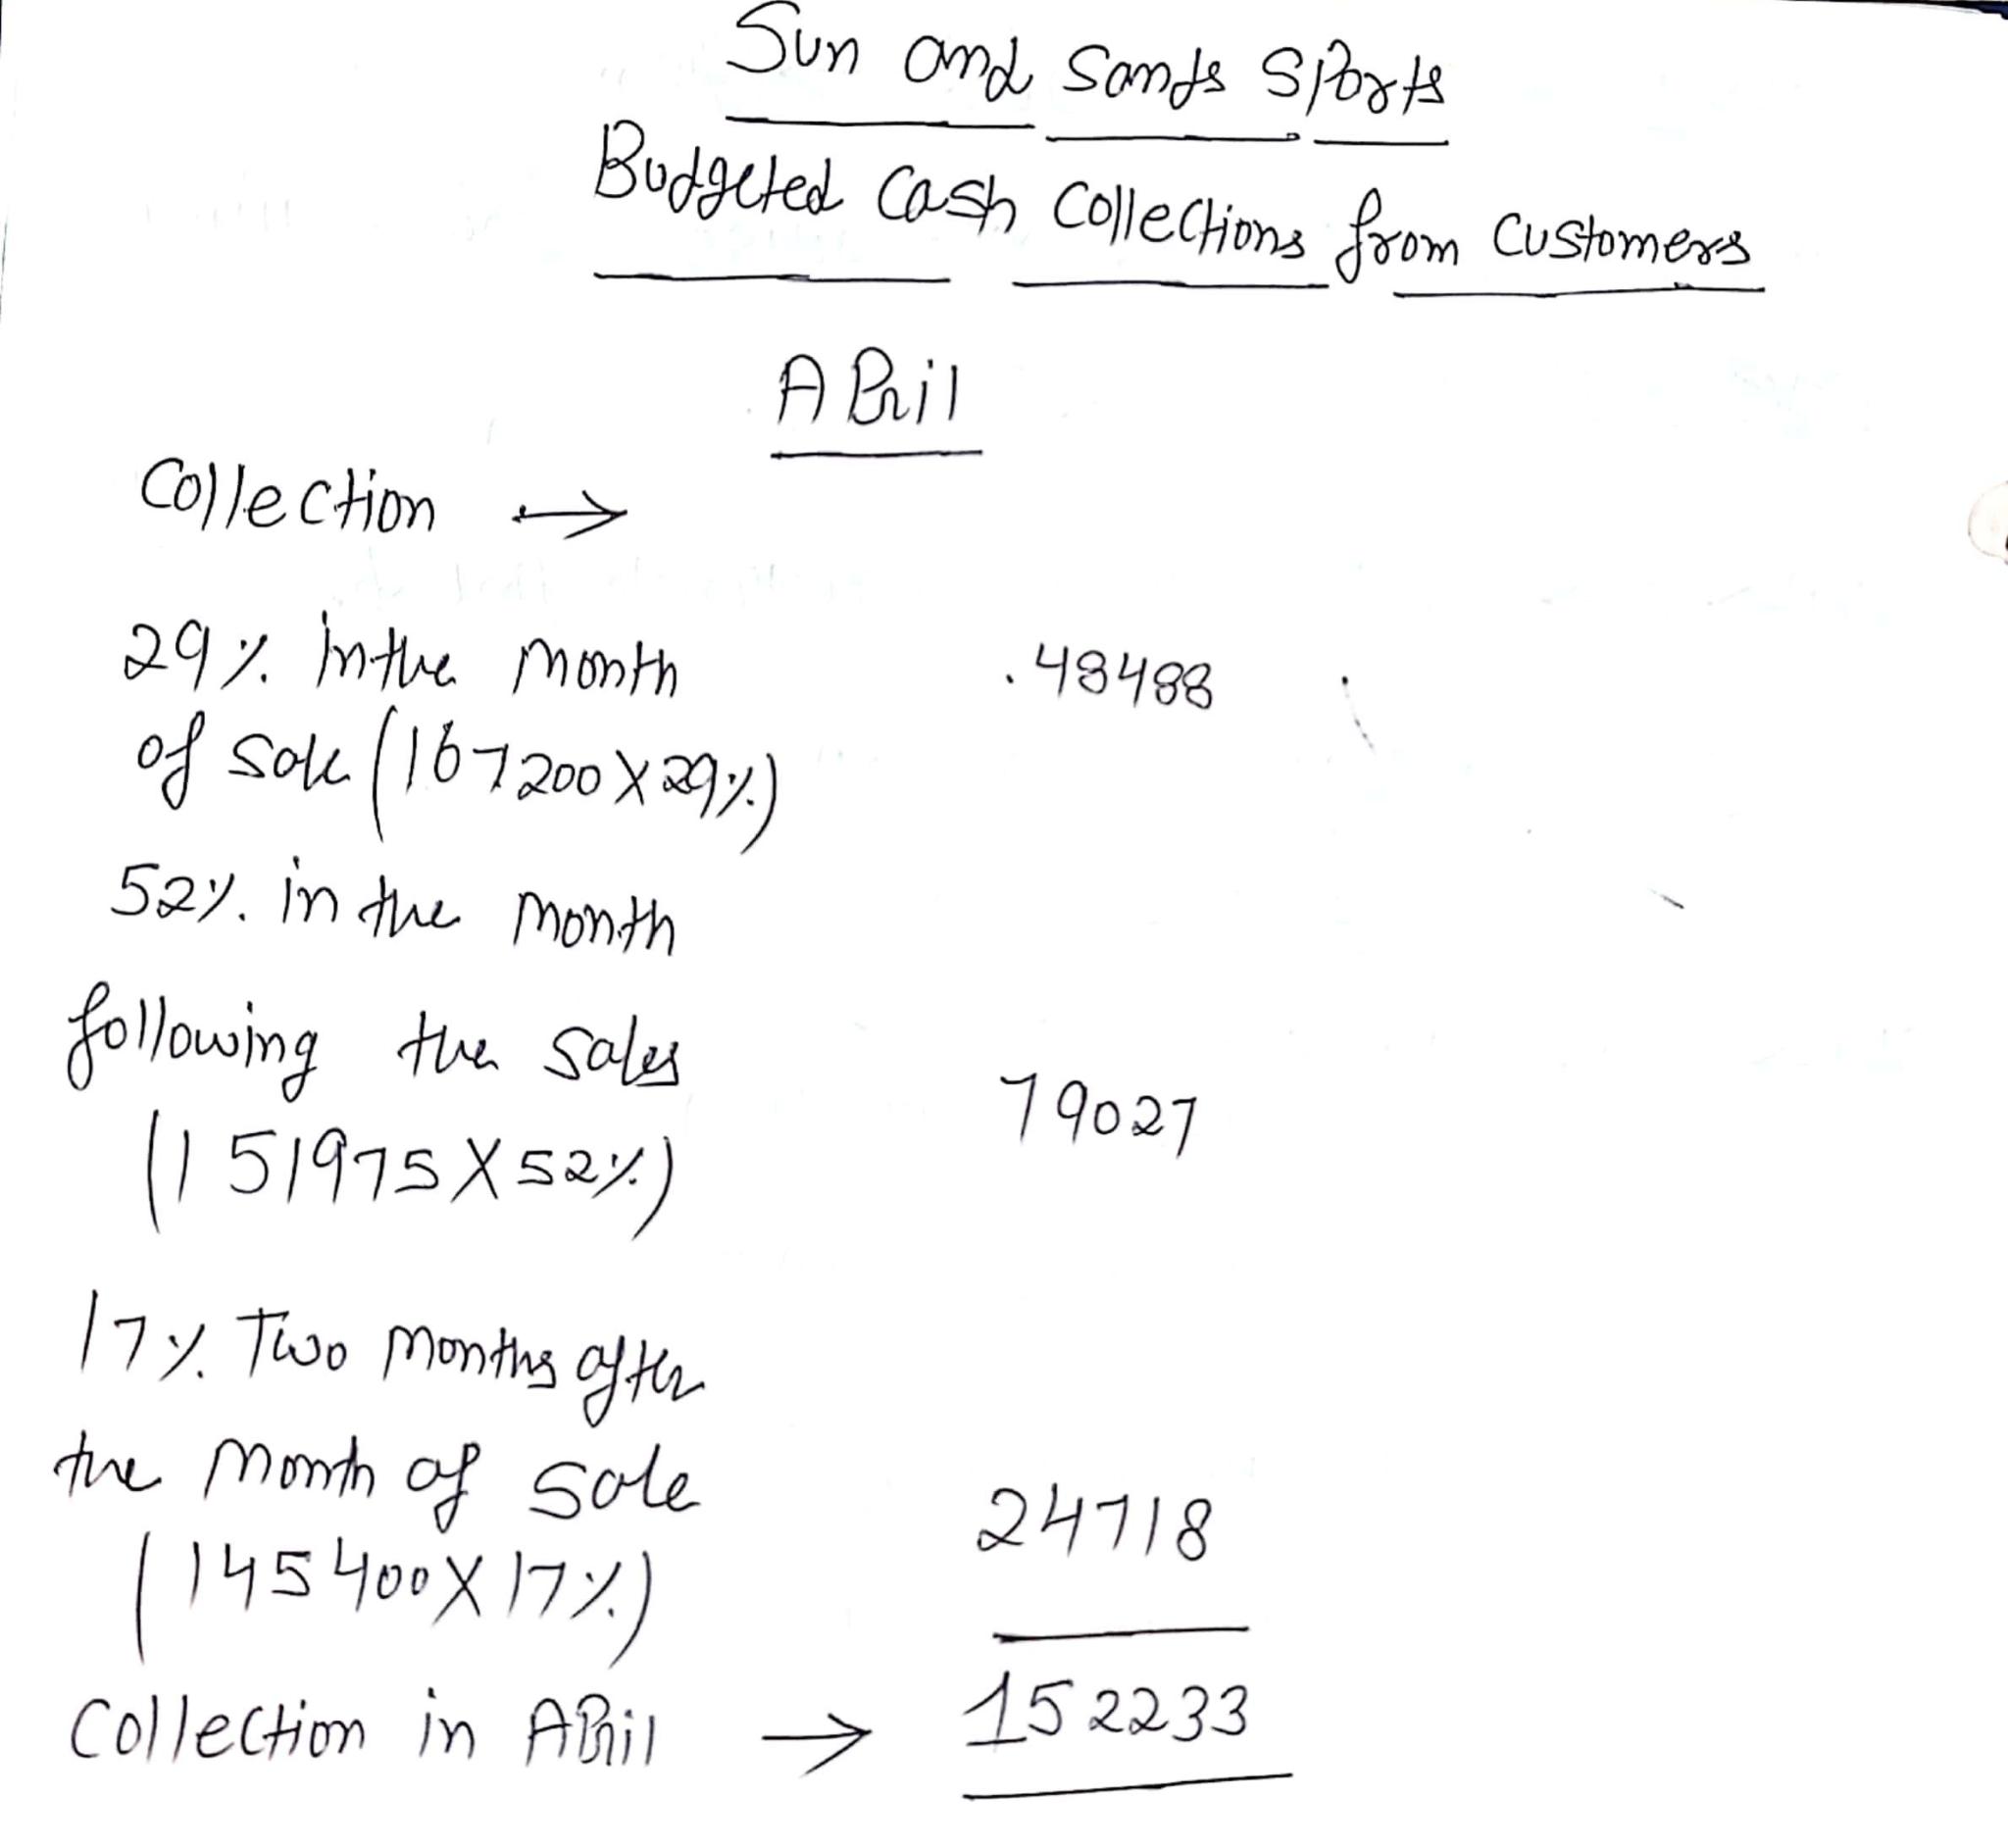 Sun and Sands Sports
Budgeted Cash Collections from Customers
April
Collection →
29% in the month .48488
of sale (167200X29%)
52% in the month
following the sales
79027
(151975X52%)
17% Two months after
the month of sale
24718
(145400X17%)
Collection in April → 152233